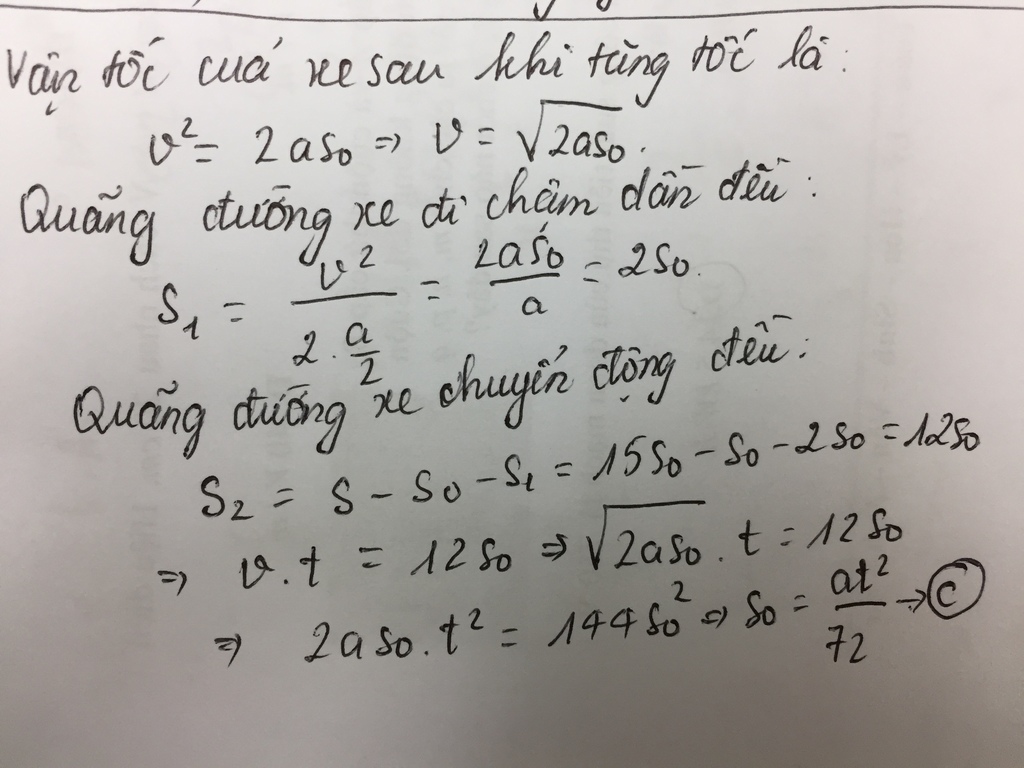 Vận tốc cuả xe sau khi tăng tốc là:
v² = 2as₀ => v = √2as₀.
Quãng đường xe đi chậm dần đều:
S₁ = v² / (2 . a/2) = 2as₀ / a = 2s₀.
Quãng đường xe chuyển động đều:
S₂ = S - S₀ - S₁ = 15s₀ - s₀ - 2s₀ = 12s₀
=> v.t = 12s₀ => √2as₀ . t = 12s₀
=> 2as₀.t² = 144s₀² => s₀ = at² / 72 → C